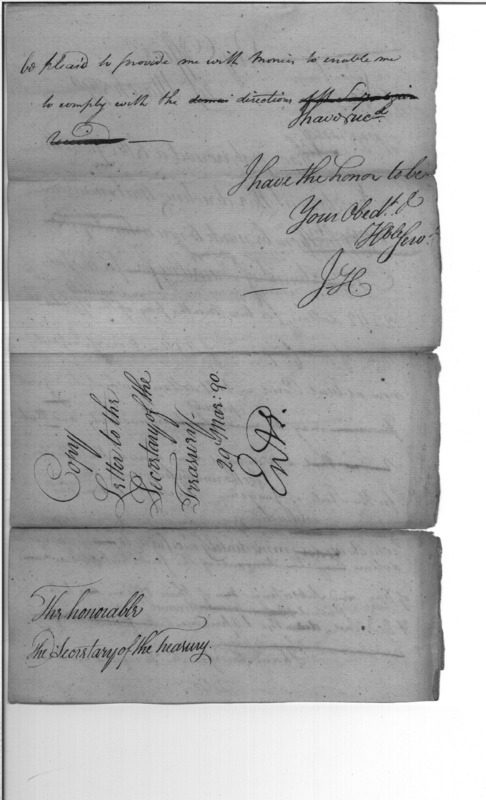 be pleas'd to provide me with Monies to enable me
to comply with the directions
I have rec.d
I have the honor to be
Your Obed.t &
Hble Serv.t
J H.
Copy
Letter to the
Secretary of the
Treasury.
29 Mar: 90.
The honorable
The Secretary of the Treasury.